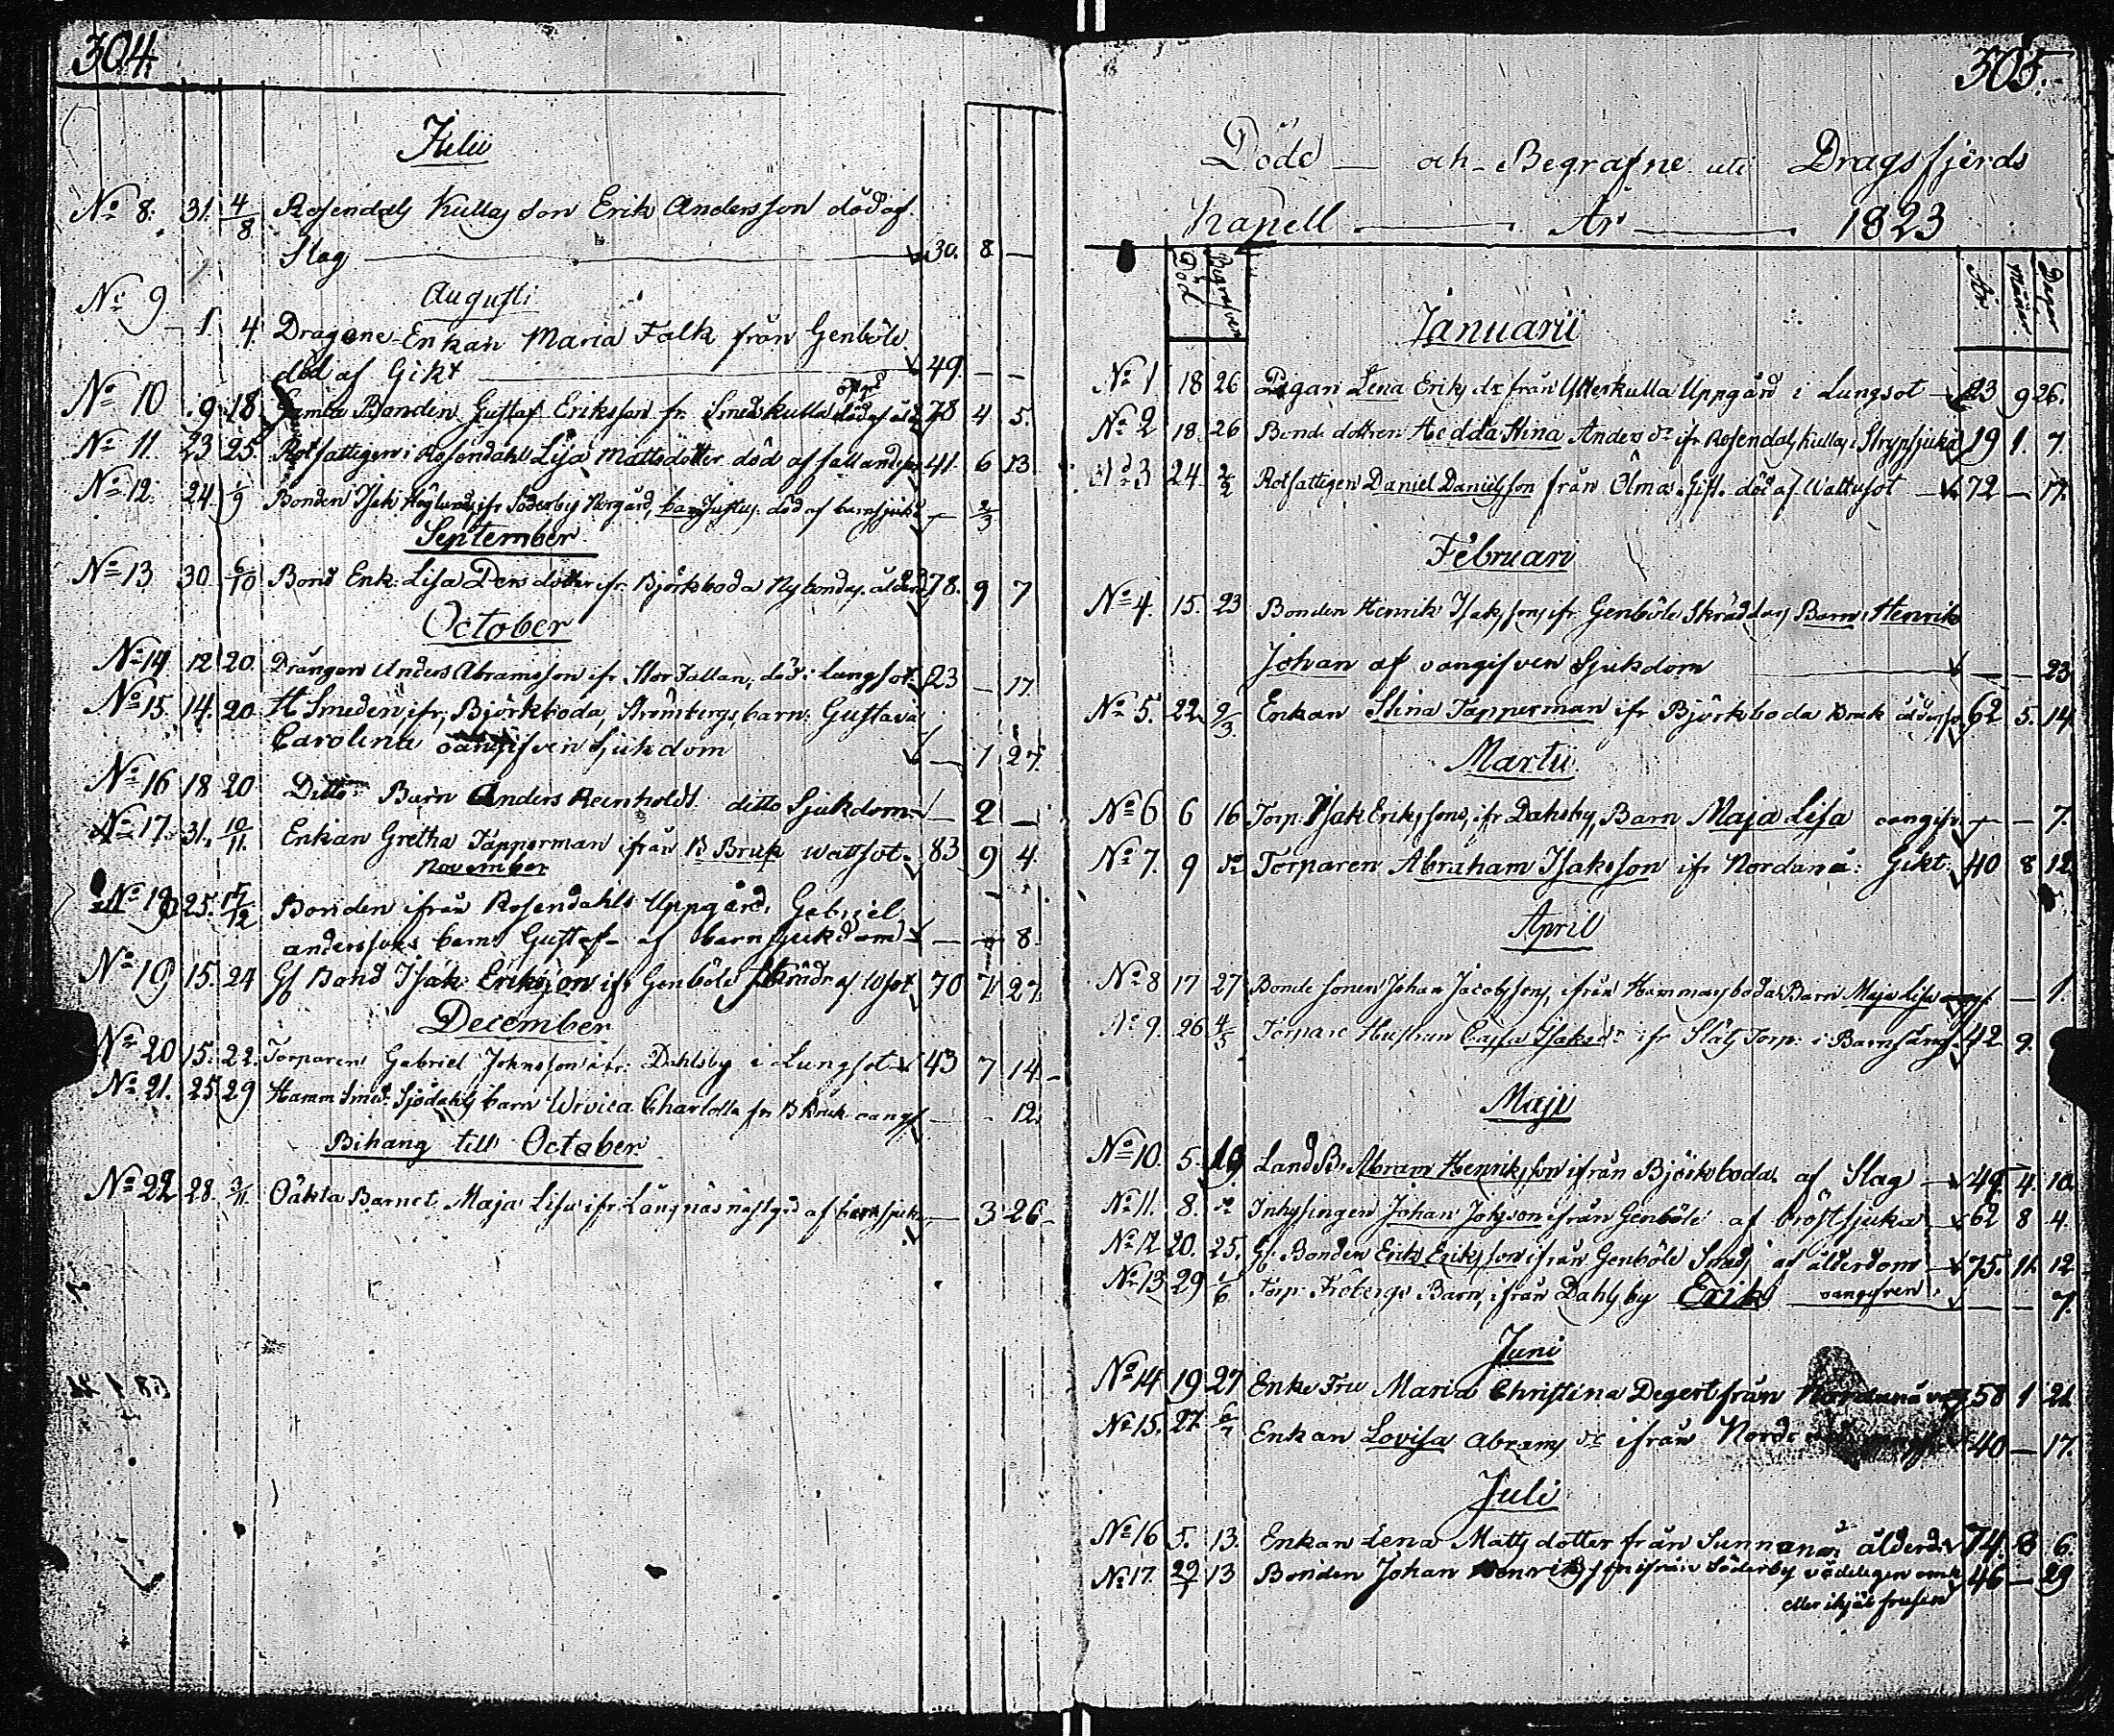 304.
Julii
No 8. 31. 4/8 Rosendals Kullas Son Erik Andersson död af
Slag 30. 8 —
Augusti
No 9 1. 4. Dragone Enkan Maria Falk från Genböle
död af Gikt 49. — —
No 10 9 18 Gamla Bonden Gustaf Eriksson fr. Smedskulla död af 78 4 5.
No 11. 23 25. Rotfattigen i Rosendahl Lisa Mattsdotter död af fallandes 41. 6 13
No 12. 24. 1/9 Bonden Isak Höglunds ifr Söderby Norgård, barn Justus. död af barnsjukd — 2/3
September
No 13 30. 6/10 Bond Enk. Lisa Ders dotter ifr. Björkboda Nybondas. ålderd 78. 9 7
October
No 14 12 20. Drängen Anders Abramsson ifr Stor Tallan, död i Lungsot. 23 — 17
No 15. 14. 20 H Smeden ifr. Björkboda, Strömbergs barn. Gustava
Carolina oangifven Sjukdom — 1 27.
No 16 18 20 Ditto Barn Anders Reinholdt ditto Sjukdom — 2 —
No 17. 31. 10/11. Enkan Gretha Tapperman ifrån B Bruk wattsot. 83 9 4.
November
No 18 25. /12 Bonden ifrån Rosendahls Uppgård, Gabriel
anderssons barn Gustaf af barnsjukdom — — 8
No 19 15. 24 Gl Bond Isak Eriksson ifr Genböle Skrädd af W sot 70 7. 27.
December
No 20 15. 22. Torparen Gabriel Johnsson ifr. Dahlsby i Lungsot 43 7 14
No 21. 25 29 Hamm Smed. Sjödahls barn Ulrica Charlotta fr B Bruk oangf — — 12.
Bihang till October
No 22 28. 3/11. Oäkta Barnet Maja Lisa ifr Långnäs af barnsjukd — 3 26
305.
Döde — och Begrafne uti Dragsfjerds
Kapell — År — 1823
Död Begrafven År Måner Dagar
Januarii
No 1 18 26 Pigan Lena Eriks dr från Ytterkulla Uppgård i Lungsot 23 9 26.
No 2 18. 26 Bonde dottren Hedda Stina Anders dr ifr Rosendals Kullas i Strypsjuka 19 1. 7.
No 3 24 2/2 Rotfattigen Daniel Danielsson från Ölmo. Gift. död af Wattusot 72 — 17.
Februari
No 4. 15. 23 Bonden Henrik Isakssons ifr Genböle Skräddars Barn Henrik
Johan af oangifven Sjukdom — — 23
No 5. 22. 9/3. Enkan Stina Tapperman ifr Björkboda Bruk 62 5. 14
Martii
No 6 6 16 Torp. Isak Erikssons, ifr Dahlsby, Barn Maja Lisa oangifv — — 7.
No 7. 9 Torparen Abraham Isaksson ifr Nordanå. Gikt. 40 8 12
April
No 8 17 27 Bonde sonen Johan Jacobssons, ifrån Hammarsboda Barn Maja Lisa — 1.
No 9. 26 4/5 Torpare Hustrun Cajsa Isaks dr ifr Slåtj Torp. i Barnsäng. 42. 9.
Maji
No 10. 5. 19. Land B. Abram Henriksson ifrån Björkboda. af Slag 49. 4. 10.
No 11. 8. Inhysingen Johan Johsson ifrån Genböle af Bröstsjuka 62 8 4.
No 12 20. 25. Gl. Bonden Erik Eriksson ifrån Genböle Smeds af ålderdom 75. 11. 12
No 13 29 1/6 Torp. Frébergs Barn, ifrån Dahlsby Erik oangifven — — 7.
Juni
No 14 19 27 Enke Fru Maria Christina Degert från Nordanå 58 1 21
No 15. 27 6/7 Enkan Lovisa Abrams dr ifrån 40 — 17.
Juli
No 16 5. 13. Enkan Lena Matts dotter från Sunnanå ålderd. 74. 8 6.
No 17. 13 Bonden Johan Henriksson ifrån Söderby vådeligen omk 46 — 29
eller ihjäl frusen